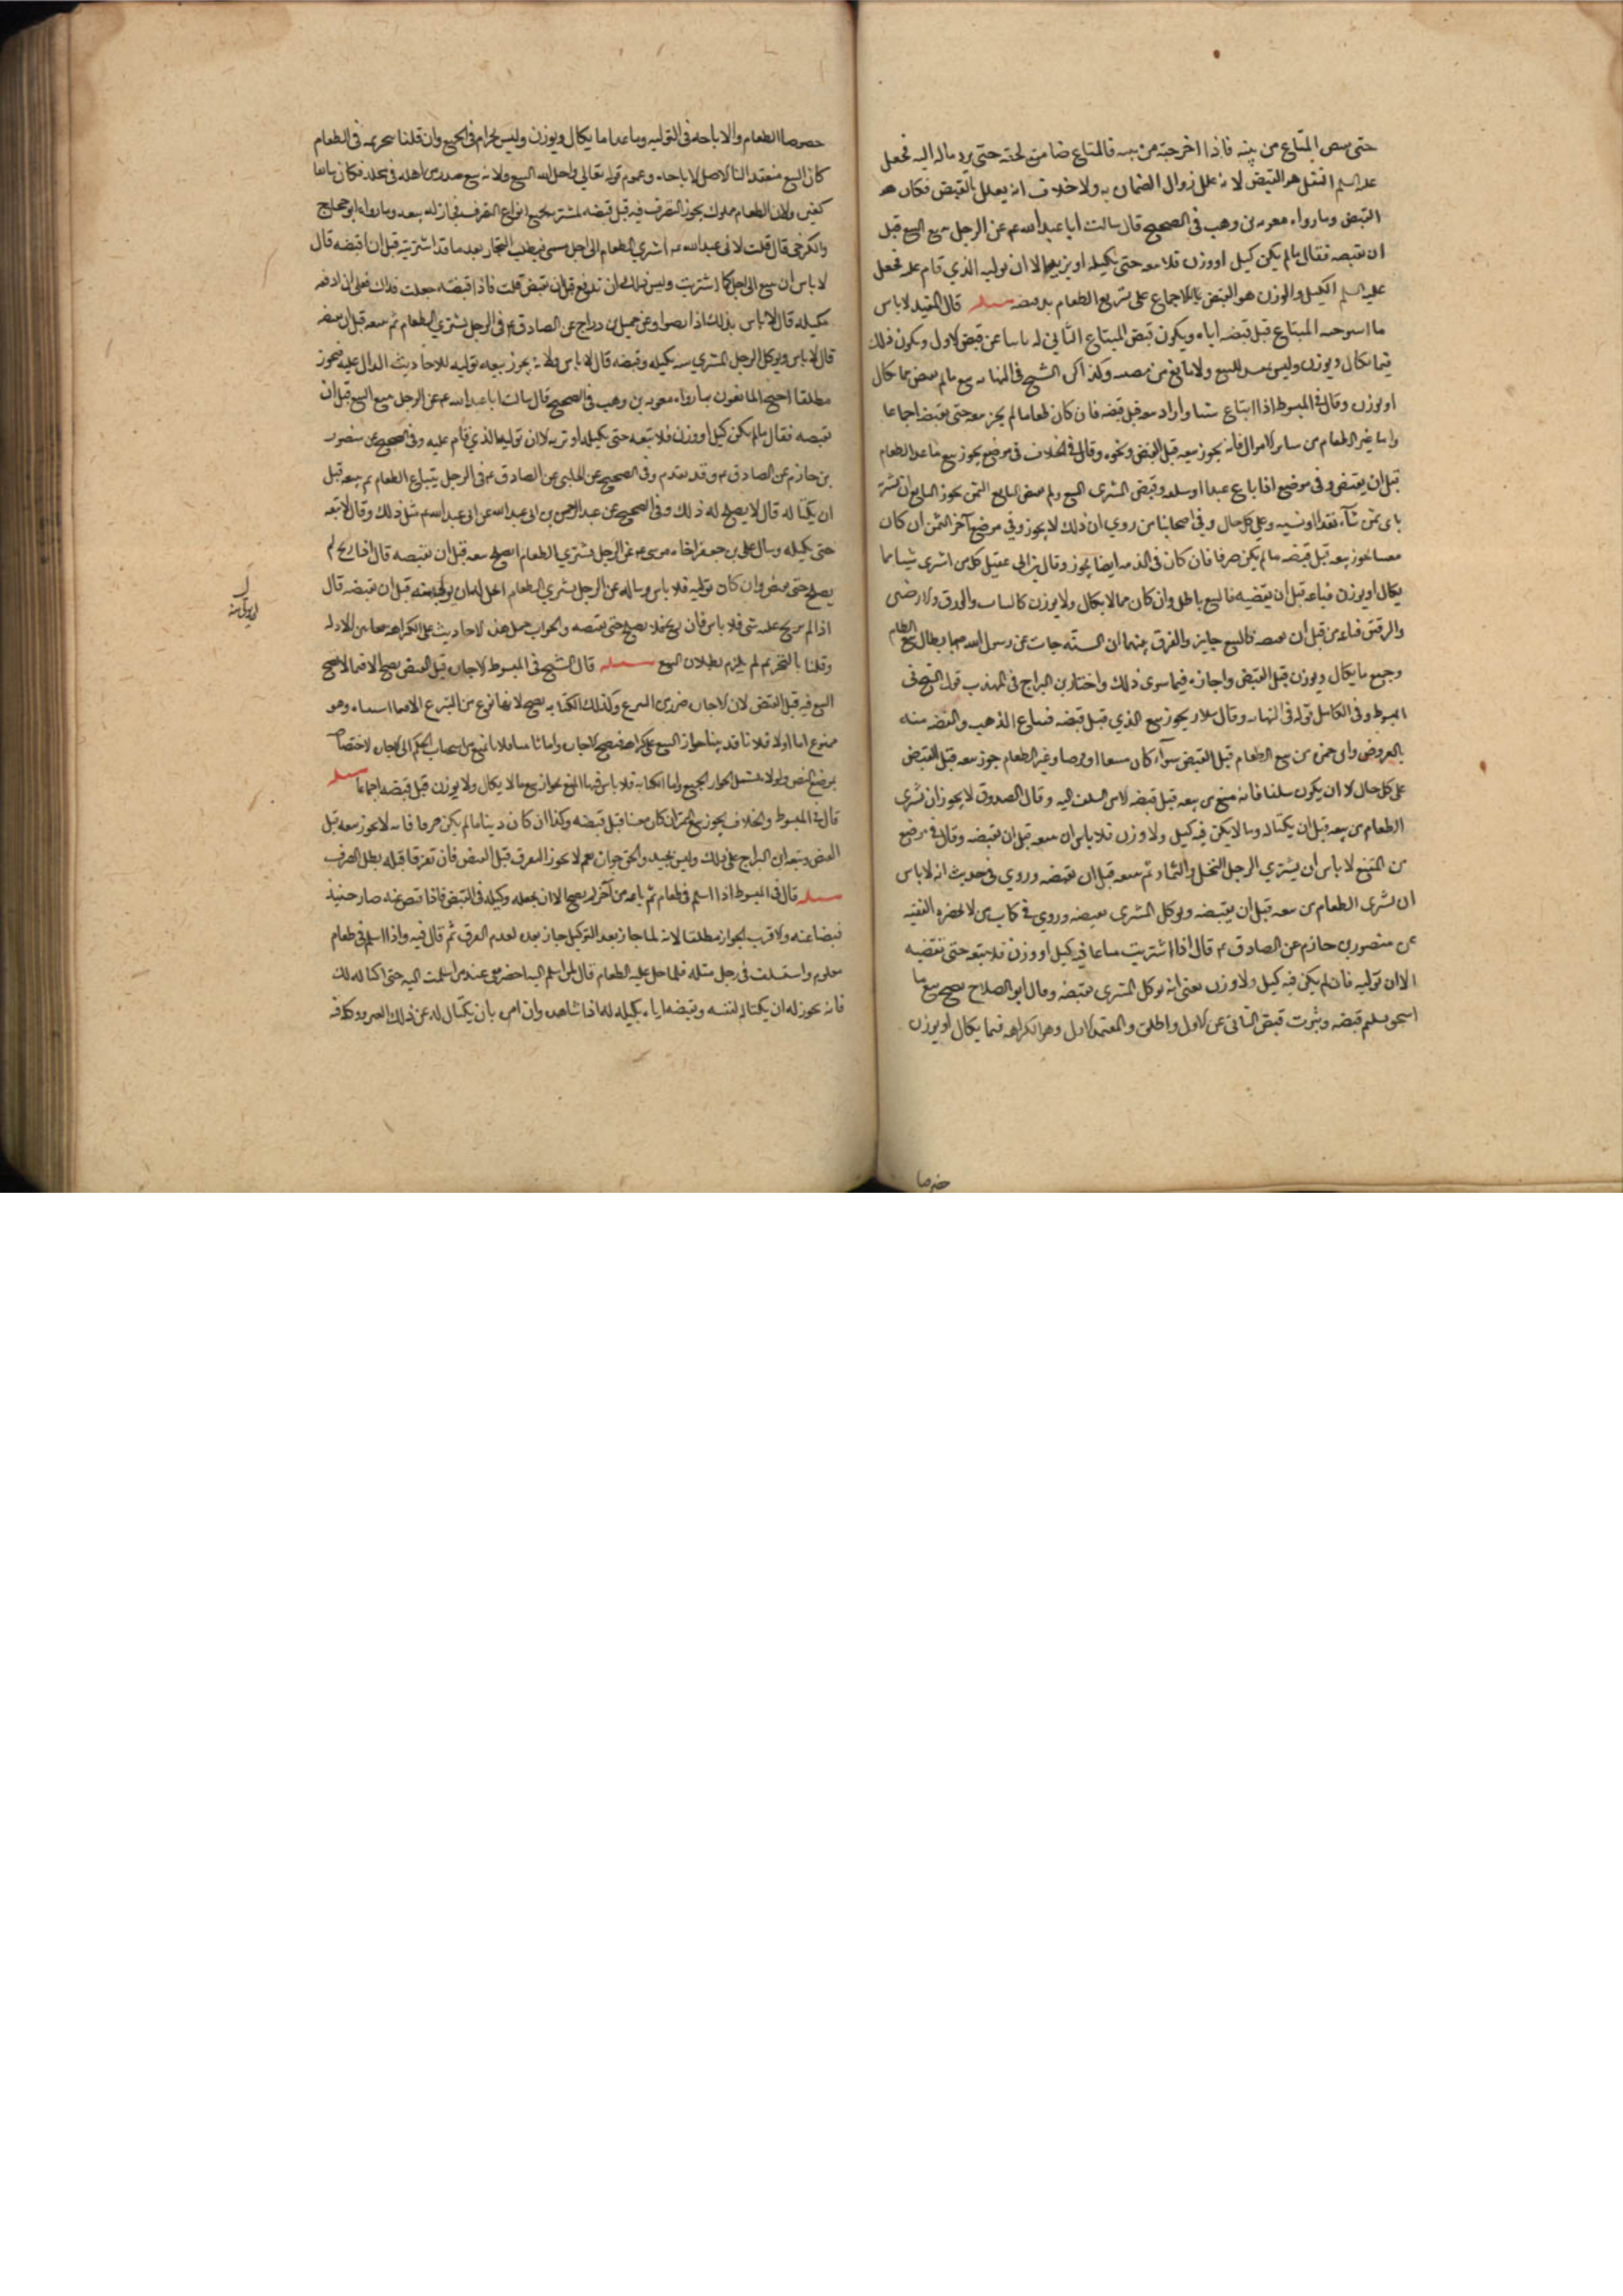 حتى يقبض المتاع من بيته فاذا اخرجه من بيته فالمتاع ضامن لحقه حتى يرد ماله اليه فجعل
عليه السلم النقل هو القبض لانه علل زوال الضمان به ولا خلاف انه يعلل بالقبض فكان هو
القبض وما رواه معويه بن وهب في الصحيح قال سالت ابا عبد الله عم عن الرجل يبيع البيع قبل
ان يقبضه فقال ما لم يكن كيل او وزن فلا تبعه حتى تكيله او تزنه الا ان توليه الذي قام عليه فجعل
عليه السلم الكيل والوزن هو القبض للاجماع على تسويغ الطعام بعد قبضه مسله قال المفيد لا باس
المبتاع قبل قبضه اياه ويكون قبض المبتاع الثاني له نايبا عن قبض الاول ويكون ذلك
فيما يكال ويوزن وليس بمفسد للبيع ولا مانع من مضيه وكذا الشيخ في النهايه بيع ما لم يقبض مما يكال
او يوزن وقال في المبسوط اذا ابتاع شيئا واراد بيعه قبل قبضه فان كان طعاما لم يجز بيعه حتى يقبضه اجماعا
واما غير الطعام من ساير الاموال فانه يجوز بيعه قبل القبض ونحوه وقال في الخلاف في موضع يجوز بيع ما عدا الطعام
قبل ان يقبض وفي موضع اذا باع عبدا او سلعه وقبض المشتري المبيع ولم يقبض البايع الثمن يجوز للبايع ان يشتريه
باي ثمن شآء نقدا او نسيه وعلى كل حال وفي اصحابنا من روي ان ذلك لا يجوز وفي موضع آخر الثمن ان كان
معينا يجوز بيعه قبل قبضه ما لم يكن صرفا فان كان في الذمه ايضا يجوز وقال بن ابي عقيل كل من اشترى شيئا مما
يكال او يوزن فباعه قبل ان يقبضه فالبيع باطل وان كان مما لا يكال ولا يوزن كالثياب والورق والارضين
والرقيق فباعه من قبل ان يقبضه فالبيع جايز والفرق بينهما ان السنه جات عن رسول الله صلى بابطال بيع الطعام
وجميع ما يكال ويوزن قبل القبض واجازه فيما سوى ذلك واختار بن البراج في المهذب قول الشيخ في
المبسوط وفي الكامل قوله في النهايه وقال سلار يجوز بيع الذي قبل قبضه فيباع الذهب والفضه منه
بالعروض وابن حمزه من بيع الطعام قبل القبض سوآء كان مبيعا او قرضا وغير الطعام جوز بيعه قبل القبض
على كل حال الا ان يكون سلفا فانه منع من بيعه قبل قبضه الا من المسلف اليه وقال الصدوق لا يجوز ان يشترى
الطعام ثم يبيعه قبل ان يكتاله وما لا يكن فيه كيل ولا وزن فلا باس ان يبيعه قبل ان يقبضه وقال في موضع
من المقنع لا باس ان يشتري الرجل النخل والثمار ثم يبيعه قبل ان يقبضه وروي في حديث انه لا باس
ان يشترى الطعام ثم يبيعه قبل ان يقبضه ويوكل المشترى بقبضه وروي في كتاب من لا يحضره الفقيه
عن منصور بن حازم عن الصادق ع قال اذا اشتريت متاعا فيه كيل او وزن فلا تبعه حتى تقبضه
الا ان توليه فان لم يكن فيه كيل ولا وزن يعني انه يوكل المشترى بقبضه وقال ابو الصلاح يصح بيع ما
قبضه وينوب قبض الثاني عن الاول واطلق والمعتمد الاول وهو الكراهه فيما يكال او يوزن
خصوصا
خصوصا الطعام والاباحه في التوليه وما عدا ما يكال ويوزن وليس بحرام في الجميع وان قلنا بتحريمه في الطعام
كان البيع منعقدا لنا الاصل الاباحه وعموم قوله تعالى واحل الله البيع ولانه بيع صدر من اهله في محله فكان سايغا
كغيره ولان الطعام مملوك يجوز التصرف فيه قبل قبضه لمشتريه بجميع انواع التصرف فجاز له بيعه وما رواه ابن حجاج
والكرخي قال قلت لابي عبد الله عم اشتري الطعام الى اجل مسمى فيطلبه التجار بعد ما قد اشتريته قبل ان اقبضه قال
لا باس ان تبيع الى اجل كما اشتريت وليس لك ان تدفع قبل ان تقبض قلت فاذا قبضته جعلت فداك فعلي ان ادفعه
بكيله قال لا باس بذلك اذا رضوا وعن جميل بن دراج عن الصادق ع في الرجل يشتري الطعام ثم يبيعه قبل ان يقبضه
قال لا باس ويوكل الرجل المشتري منه بكيله وقبضه قال لا باس ولانه يجوز بيعه توليه للاحاديث الداله عليه فيجوز
مطلقا احتج المانعون بما رواه معويه بن وهب في الصحيح قال سالت ابا عبد الله عم عن الرجل يبيع البيع قبل ان
يقبضه فقال ما لم يكن كيل او وزن فلا تبعه حتى تكيله او تزنه الا ان توليه الذي قام عليه وفي الصحيح عن منصور
بن حازم عن الصادق ع وقد تقدم وفي الصحيح عن الحلبي عن الصادق ع في الرجل يبتاع الطعام ثم يبيعه قبل
ان يكتاله قال لا يصلح له ذلك وفي الصحيح عن عبد الرحمن بن ابي عبد الله عن ابي عبد الله عم مثل ذلك وقال لا تبعه
حتى تكيله وسال علي بن جعفر اخاه موسى ع عن الرجل يشتري الطعام ايصلح بيعه قبل ان يقبضه قال اذا ربح لم
يصلح حتى يقبض وان كان توليه فلا باس وساله عن الرجل يشتري الطعام ايحل له ان يولى منه قبل ان يقبضه قال
اذا لم يربح عليه شي فلا باس فان ربح فلا يصلح حتى يقبضه والجواب حمل هذه الاحاديث على الكراهه جمعا بين الادله
وقلنا بالتحريم لم يلزم بطلان البيع مسله قال الشيخ في المبسوط الاجاره قبل القبض يصح الا فيما لا يصح
البيع فيه قبل القبض لان الاجاره ضرب من البيع وكذلك الكتابه يصح لانها نوع من البيع الا فيما وهو
ممنوع اما اولا فلانا قد بينا جواز البيع على كراهه فيصح الاجاره واما ثانيا فلانا نمنع من انسحاب الحكم الى الاجاره لاختصاصه
بموضع النص ولولاه لشمل الجواز الجميع واما الكتابه فلا باس فيها المنع لجواز بيع ما لا يكال ولا يوزن قبل قبضه اجماعا مسله
قال في المبسوط والخلاف يجوز بيع الثمن ان كان معينا قبل قبضه وكذا ان كان دينا ما لم يكن صرفا فانه لا يجوز بيعه قبل
القبض وتبعه ابن البراج على ذلك وليس بجيد والحق جوازه نعم لا يجوز التفرق قبل القبض فان تفرقا قبله بطل الصرف
مسله قال في المبسوط اذا اسلم في طعام ثم باعه من آخر لم يصح الا ان يجعله وكيله في القبض فاذا قبض عنه صار حينئذ
قبضا عنه والاقرب الجواز مطلقا لانه لما جاز بعد التوكيل جاز بعده لعدم الفرق ثم قال فيه واذا اسلم في طعام
معلوم واستسلف في رجل مثله فلما حل عليه الطعام قال لمن اسلم اليه احضر معي عند من اسلمت اليه حتى اكتاله لك
فانه يجوز له ان يكتاله لنفسه وقبضه اياه بكيله له اذا شاهده وان امره بان يكتال له من ذلك الغير ووكله فيه